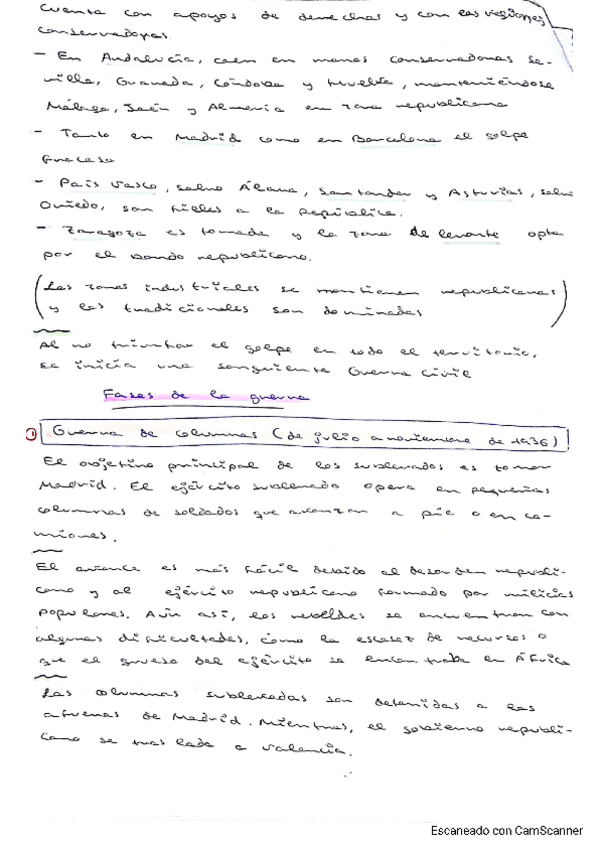 cuenta con apoyos de derechas y con las regiones
conservadoras.
- En Andalucía, caen en manos conservadoras Se-
villa, Granada, Córdoba y Huelva, manteniéndose
Málaga, Jaén y Almeria en zona republicana
- Tanto en Madrid como en Barcelona el golpe
fracasa
- País Vasco, salvo Álava, Santander y Asturias, salvo
Oviedo, son fieles a la República.
- Zaragoza es tomada y la zona de levante opta
por el bando republicano.
(Las zonas industriales se mantienen republicanas
y las tradicionales son dominadas)
Al no triunfar el golpe en todo el territorio,
se inicia una sangrienta Guerra Civil
Fases de la guerra
① Guerra de columnas (de julio a noviembre de 1936)
El objetivo principal de los sublevados es tomar
Madrid. El ejército sublevado opera en pequeñas
columnas de soldados que avanzan a pie o en ca-
miones.
El avance es más fácil debido al desorden republi-
cano y al ejército republicano formado por milicias
populares. Aún así, los rebeldes se encuentran con
algunas dificultades, como la escasez de recursos o
que el grueso del ejército se encontraba en África
Las columnas sublevadas son detenidas a las
afueras de Madrid. Mientras, el gobierno republi-
cano se traslada a Valencia.
Escaneado con CamScanner